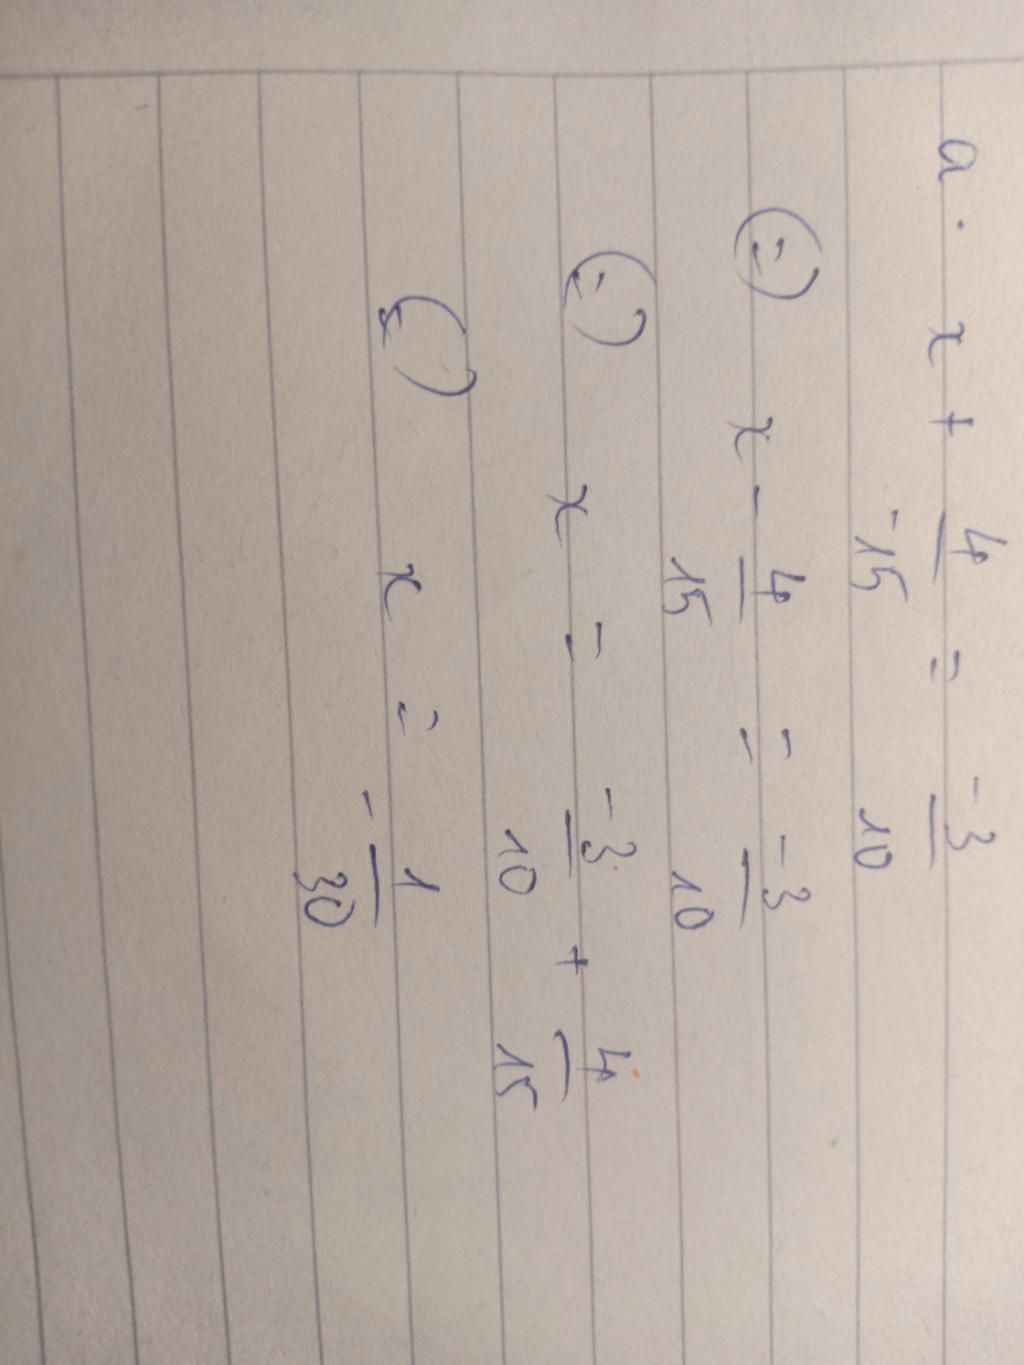 a. x + 4/-15 = -3/10
(=) x - 4/15 = -3/10
(=) x = -3/10 + 4/15
(=) x = -1/30